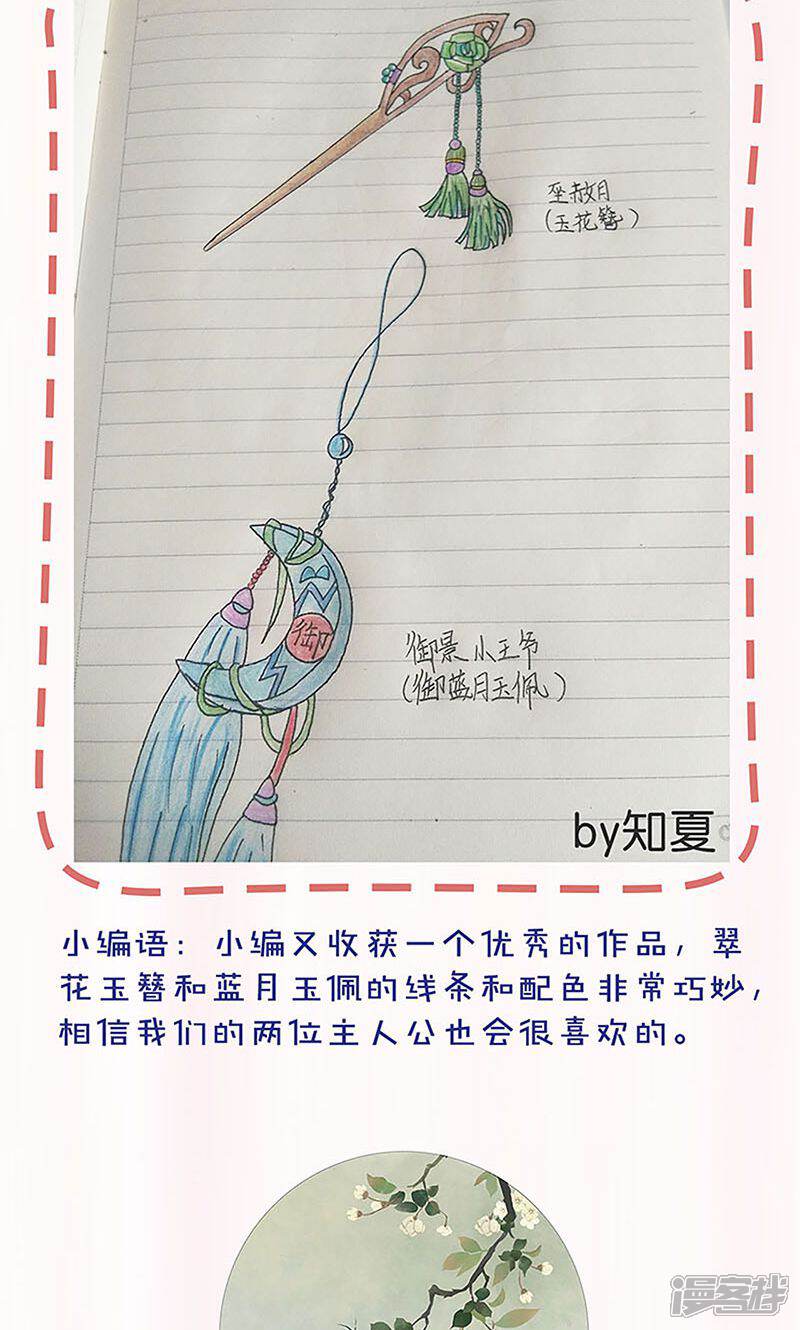 巫赦月
(玉花簪)
御
御景小王爷
(御蓝月玉佩)
by知夏
小编语：小编又收获一个优秀的作品，翠
花玉簪和蓝月玉佩的线条和配色非常巧妙，
相信我们的两位主人公也会很喜欢的。
漫客栈